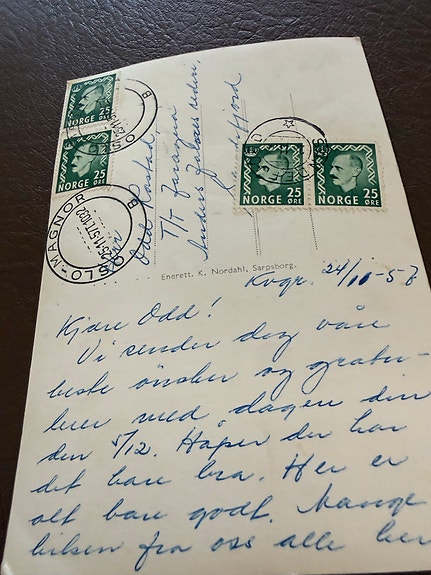 NORGE 25 ØRE
NORGE 25 ØRE
NORGE 25 ØRE
NORGE 25 ØRE
OSLO-MAGNOR
B
B
Odd
T/T
Anders Jahres rederi,
Enerett. K. Nordahl, Sarpsborg.
Kvgr. 24/11-57
Kjære Odd!
Vi sender deg våre
beste ønsker og gratu-
lerer med dagen din
den 5/12. Håper du har
det bare bra. Her er
alt bare godt. Mange
hilsen fra oss alle her